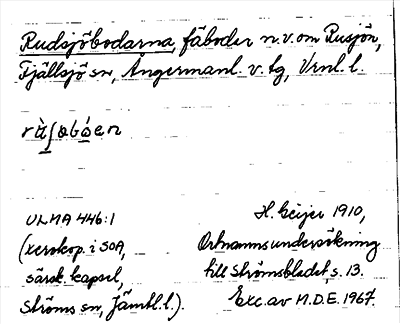 Rudsjöbodarna, fäboder n.v. om Rusjön,
Fjällsjö sn, Ångermanl. v. tg, Vrnl. l.
rùʃəbóen
ULMA 446:1
(xerokop. i SOA,
särsk. kapsel,
Ströms sn, Jämtl. l.).
H. Geijer 1910,
Ortnamnsundersökning
till Strömsbladet, s. 13.
Exc. av M.D.E. 1967.